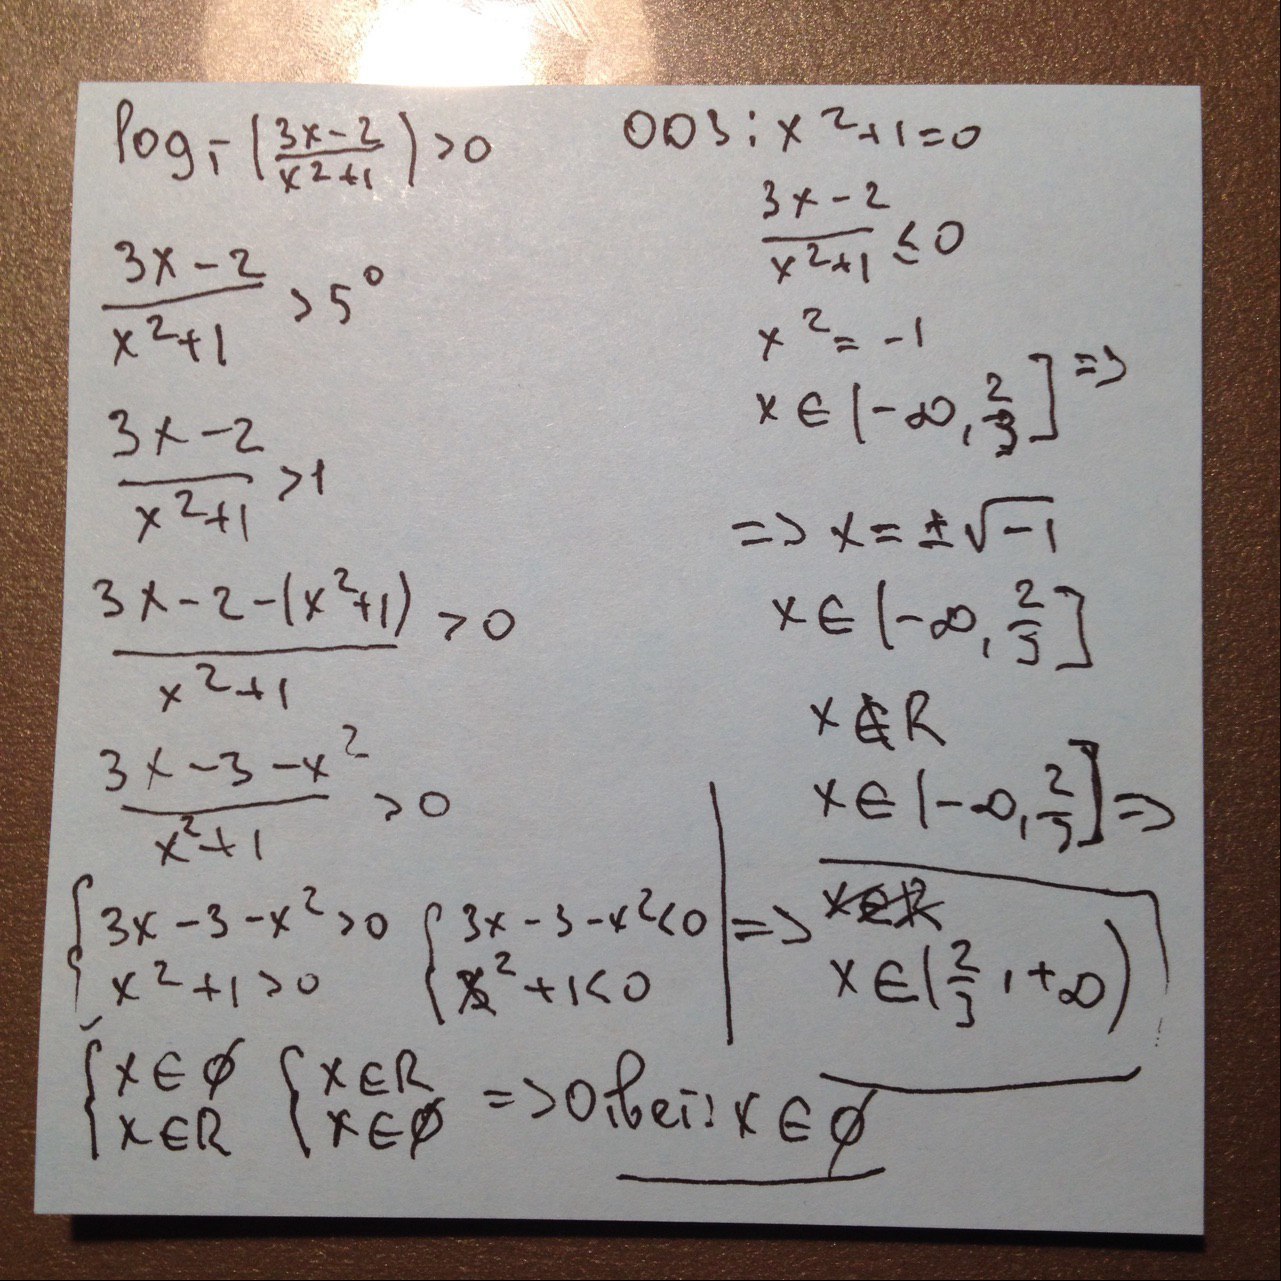 log₅(\frac{3x-2}{x²+1})>0
\frac{3x-2}{x²+1}>5⁰
\frac{3x-2}{x²+1}>1
\frac{3x-2-(x²+1)}{x²+1}>0
\frac{3x-3-x²}{x²+1}>0
{3x-3-x²>0 {3x-3-x²<0
x²+1>0 x²+1<0
{x∈∅ {x∈R => Ответ: x∈∅
x∈R x∈∅
ОДЗ: x²+1=0
\frac{3x-2}{x²+1}≤0
x²=-1
x∈(-∞,\frac{2}{3}] =>
=> x=±√-1
x∈(-∞,\frac{2}{3}]
x∉R
x∈(-∞,\frac{2}{3}] =>
=> x∈(\frac{2}{3},+∞)